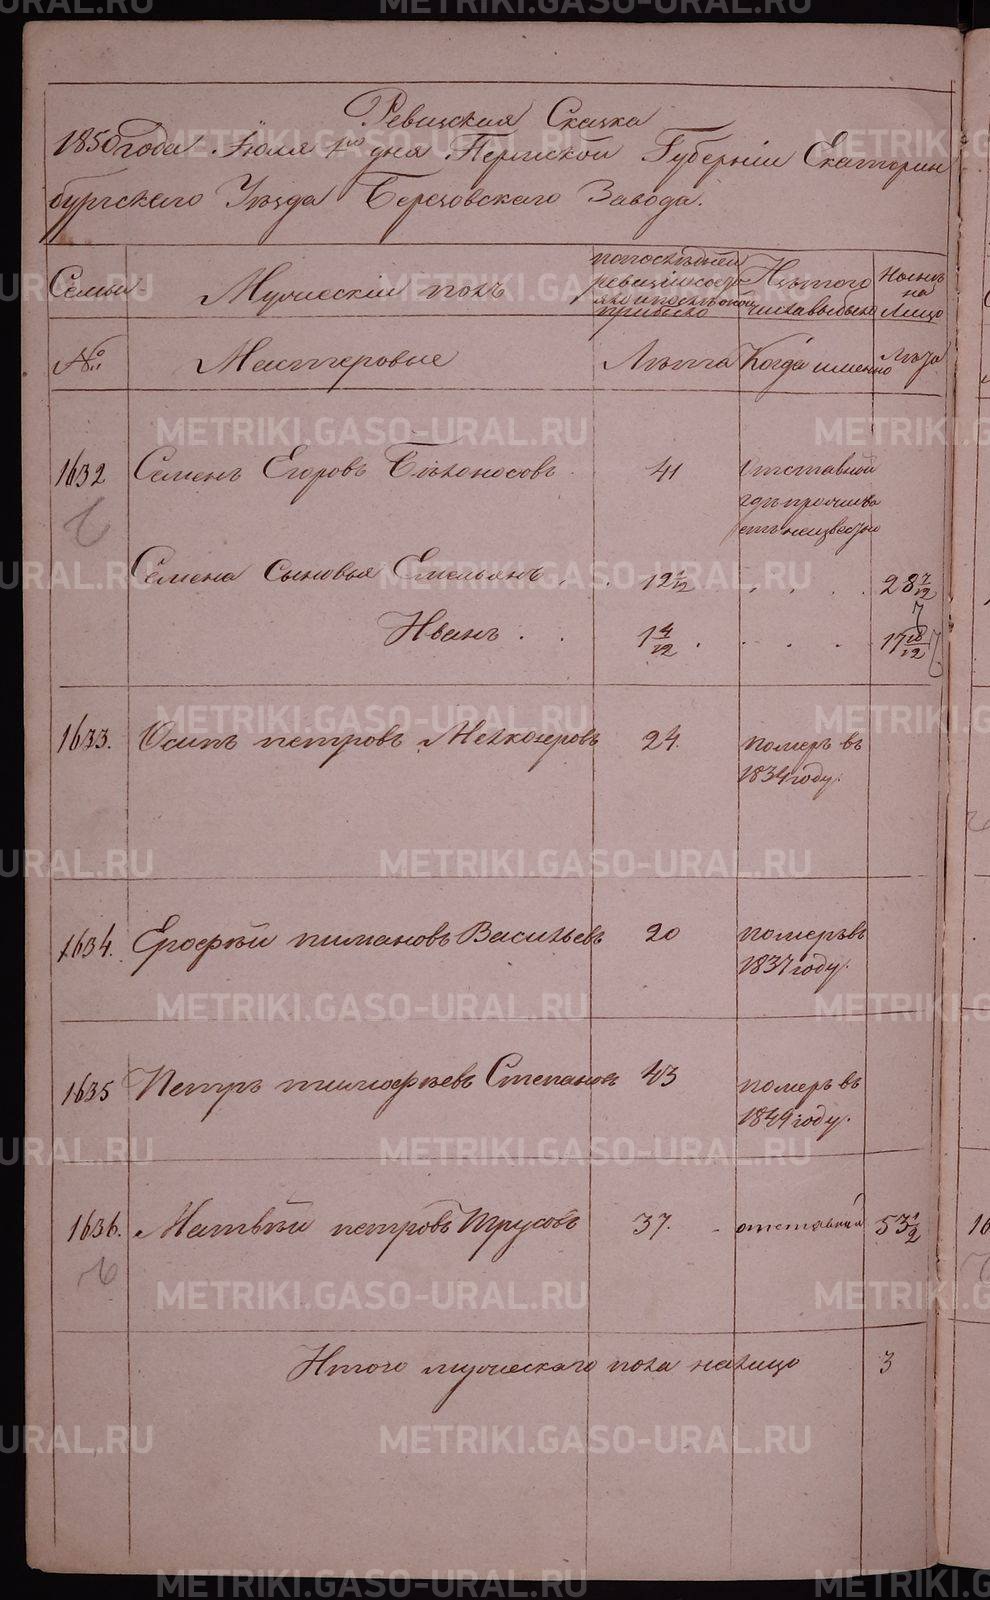 Ревизская Сказка
1850 года Июля 1го дня Пермской Губерніи Екатерин
бургскаго Уѣзда Березовскаго Завода.
Семьи Мужескій полъ по последней Изътого Нынѣ
ревизіи состо числа выбыло на
яло и послѣ оной Лицо
прибыло
№ Мастеровые Лѣта Когда именно Лѣта
1632 Семенъ Егоровъ Бѣлоносовъ 41 Отставной
гдѣ прожива
етъ неизвестно
Семена сыновья Емельянъ . . 12 1/12 . . . . 28 7/12
Иванъ . . 1 4/12 . . . . . 17 10/12
1633. Осипъ петровъ Мелкозеровъ 24. померъ въ
1834 году.
1634. Ерофѣй пимановъ Васильевъ 20 померъ въ
1837 году.
1635 Петръ тимофѣевъ Степановъ 43 померъ въ
1849 году.
1636. Матвѣй петровъ Трусовъ 37. отставной 53 1/2
Итого мужескаго пола налицо 3
METRIKI.GASO-URAL.RU